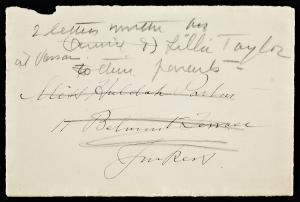 2 letters written by
(Annie &) Lillie Taylor
at Vassar
to their parents —
Miss Huldah
17 Belmont Terrace
Yonkers